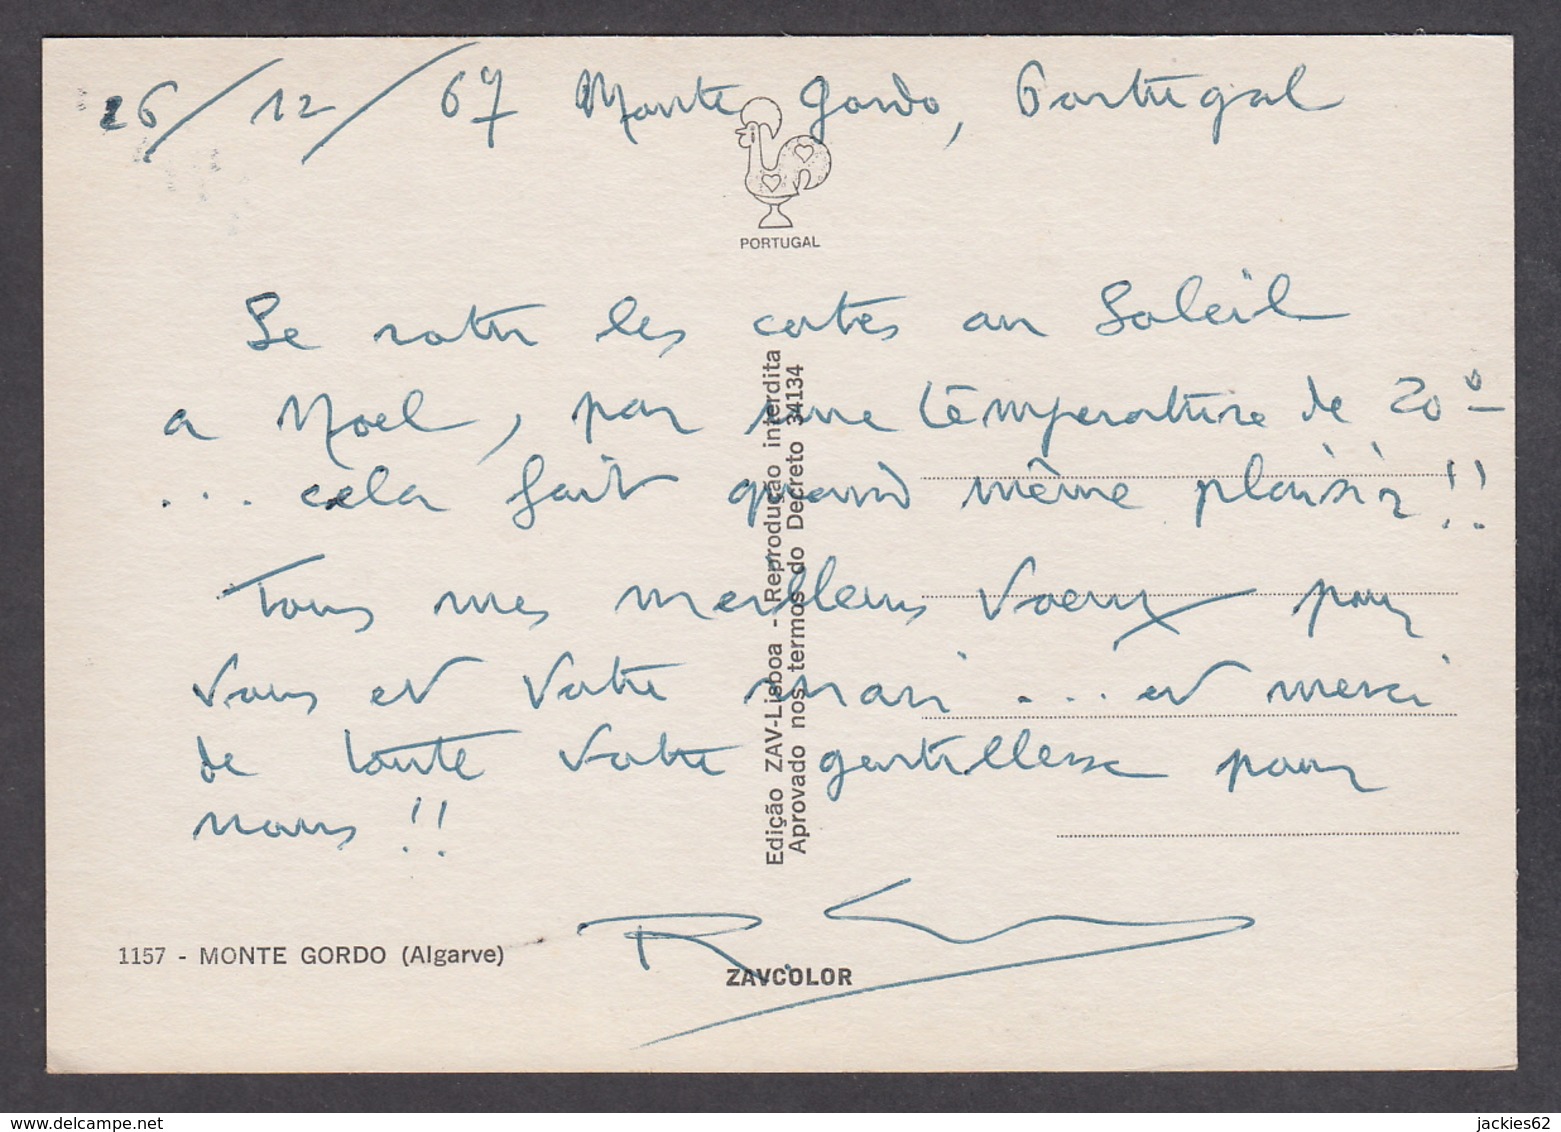 26/12/67 Monte Gordo, Portugal
PORTUGAL
Se rotir les cotes au Soleil
a Noel, par une température de 20°
... cela fait quand même plaisir !!
Tous mes meilleurs Voeux pour
Vous et Votre mari ... et merci
de toute Votre gentillesse pour
nous !!
R.
Edição ZAV-Lisboa - Reprodução interdita
Aprovado nos termos do Decreto 34134
1157 - MONTE GORDO (Algarve)
ZAVCOLOR
jackies62